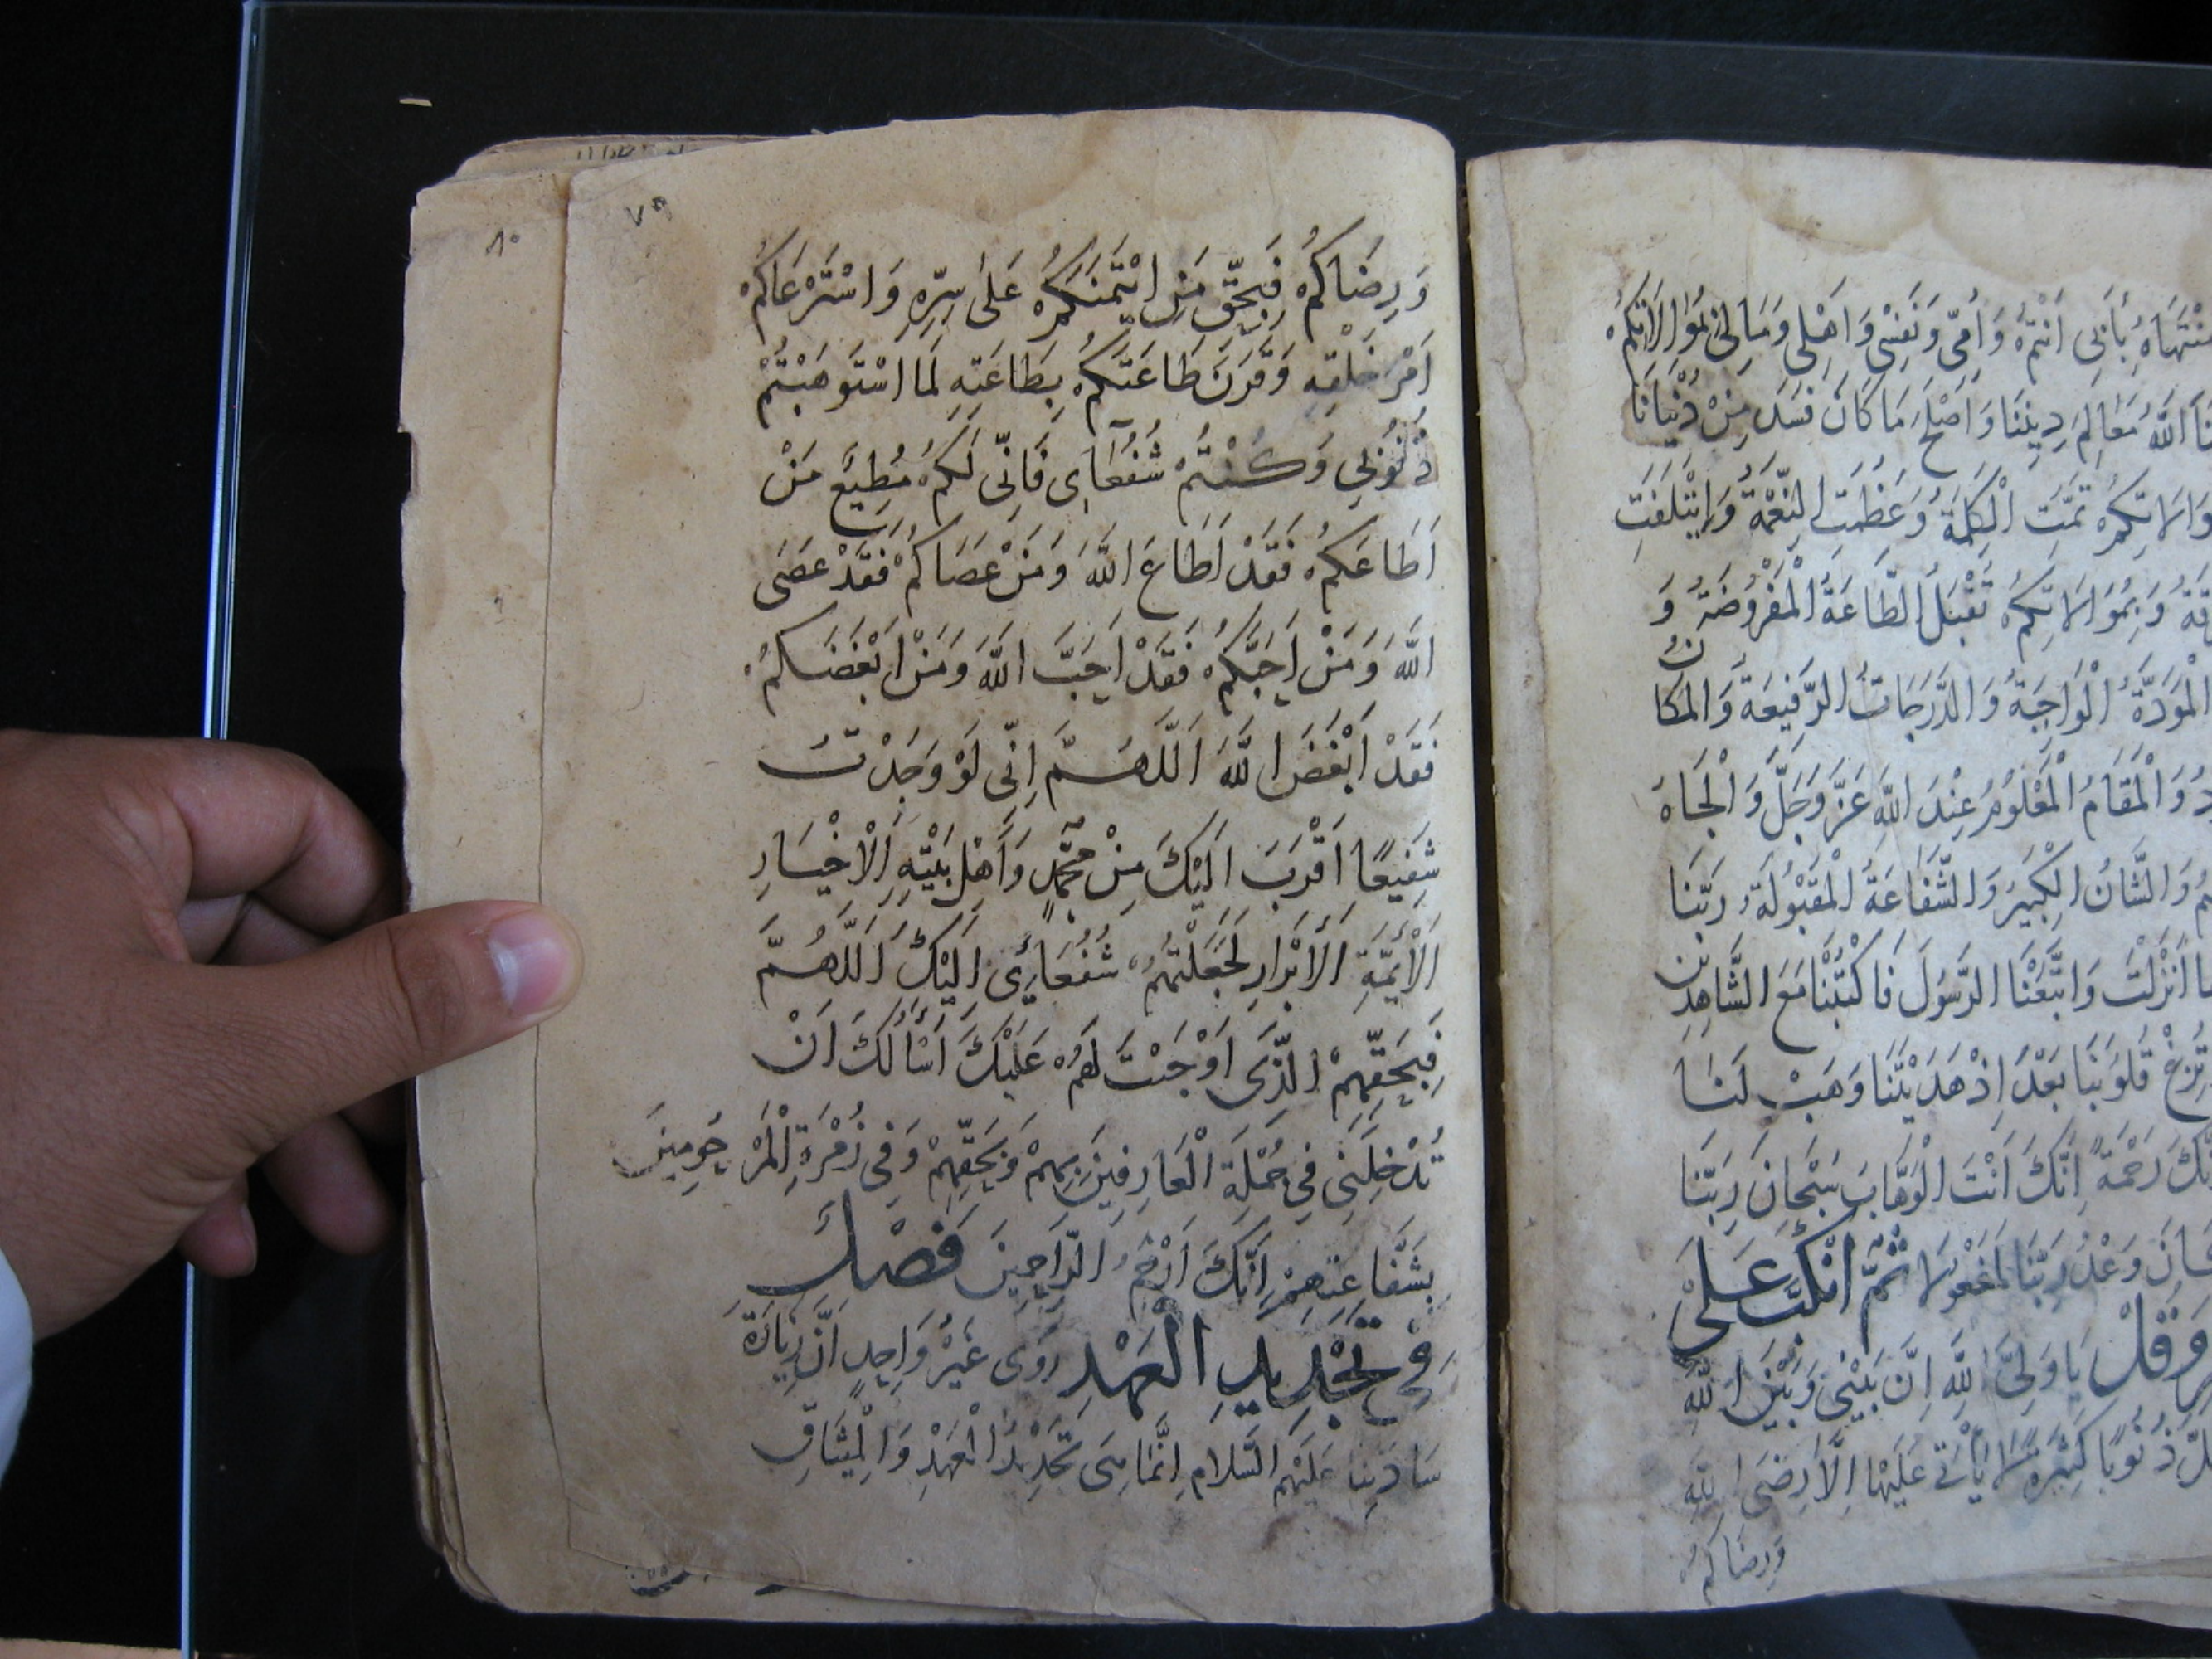 مُنْتَهَاهُ بِأَبِي أَنْتُمْ وَأُمِّي وَنَفْسِي وَأَهْلِي وَمَالِي بِمُوَالَاتِكُمْ
اللَّهُ مَعَالِمَ دِينِنَا وَأَصْلَحَ مَا كَانَ فَسَدَ مِنْ دُنْيَانَا
وَالَاتِكُمْ تَمَّتِ الْكَلِمَةُ وَعَظُمَتِ النِّعْمَةُ وَائْتَلَفَتِ
وَبِمُوَالَاتِكُمْ تُقْبَلُ الطَّاعَةُ الْمَفْرُوضَةُ وَ
الْمَوَدَّةُ الْوَاجِبَةُ وَالدَّرَجَاتُ الرَّفِيعَةُ وَالْمَكَانُ
وَالْمَقَامُ الْمَعْلُومُ عِنْدَ اللَّهِ عَزَّ وَجَلَّ وَالْجَاهُ
وَالشَّانُ الْكَبِيرُ وَالشَّفَاعَةُ الْمَقْبُولَةُ رَبَّنَا
أَنْزَلْتَ وَاتَّبَعْنَا الرَّسُولَ فَاكْتُبْنَا مَعَ الشَّاهِدِينَ
تُزِغْ قُلُوبَنَا بَعْدَ إِذْ هَدَيْتَنَا وَهَبْ لَنَا
رَحْمَةً إِنَّكَ أَنْتَ الْوَهَّابُ سُبْحَانَ رَبِّنَا
كَانَ وَعْدُ رَبِّنَا لَمَفْعُولًا ثُمَّ انْكَبَّ عَلَى
وَقُلْ يَا وَلِيَّ اللَّهِ إِنَّ بَيْنِي وَبَيْنَ اللَّهِ
ذُنُوبًا كَثِيرَةً لَا يَأْتِي عَلَيْهَا إِلَّا رِضَى اللَّهِ
وَرِضَاكُمْ
٧٩
٨٠
وَرِضَاكُمْ فَبِحَقِّ مَنِ ائْتَمَنَكُمْ عَلَى سِرِّهِ وَاسْتَرْعَاكُمْ
اَمْرَ خَلْقِهِ وَقَرَنَ طَاعَتَكُمْ بِطَاعَتِهِ لَمَا اسْتَوْهَبْتُمْ
ذُنُوبِي وَكُنْتُمْ شُفَعَآئِي فَاِنِّي لَكُمْ مُطِيعٌ مَنْ
اَطَاعَكُمْ فَقَدْ اَطَاعَ اللَّهَ وَمَنْ عَصَاكُمْ فَقَدْ عَصَى
اللَّهَ وَمَنْ اَحَبَّكُمْ فَقَدْ اَحَبَّ اللَّهَ وَمَنْ اَبْغَضَكُمْ
فَقَدْ اَبْغَضَ اللَّهَ اَللَّهُمَّ اِنِّي لَوْ وَجَدْتُ
شَفِيعًا اَقْرَبَ اِلَيْكَ مِنْ مُحَمَّدٍ وَأَهْلِ بَيْتِهِ الْأَخْيَارِ
الْأَئِمَّةِ الْأَبْرَارِ لَجَعَلْتُهُمْ شُفَعَائِي اِلَيْكَ اَللَّهُمَّ
فَبِحَقِّهِمْ الَّذِي اَوْجَبْتَ لَهُمْ عَلَيْكَ اَسْأَلُكَ اَنْ
تُدْخِلَنِي فِي جُمْلَةِ الْعَارِفِينَ بِهِمْ وَبِحَقِّهِمْ وَفِي زُمْرَةِ الْمَرْحُومِينَ
بِشَفَاعَتِهِمْ اِنَّكَ اَرْحَمُ الرَّاحِمِينَ فَصْلٌ
فِي تَجْدِيدِ الْعَهْدِ رَوَى غَيْرُ وَاحِدٍ اَنَّ زِيَارَةَ
سَادَتِنَا عَلَيْهِمُ السَّلَامُ اِنَّمَا هِيَ تَجْدِيدُ الْعَهْدِ وَالْمِيثَاقِ